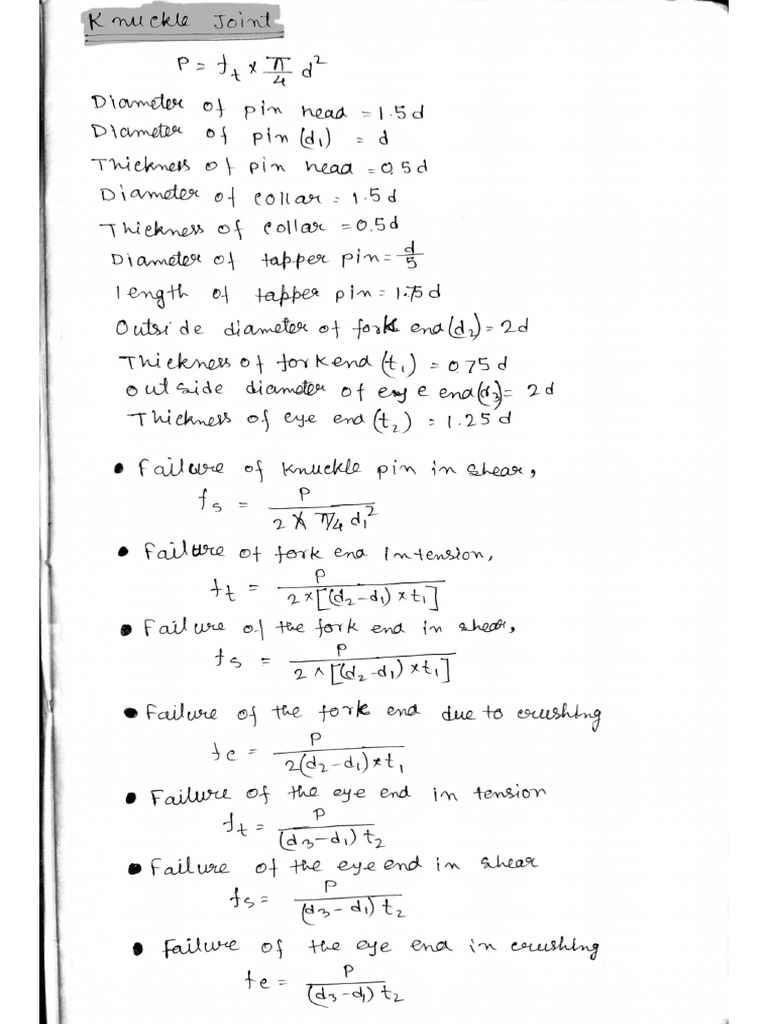 Knuckle Joint
P = ft × π/4 d²
Diameter of pin head = 1.5d
Diameter of pin (d₁) = d
Thickness of pin head = 0.5d
Diameter of collar = 1.5d
Thickness of collar = 0.5d
Diameter of tapper pin = d/5
length of tapper pin = 1.75d
Outside diameter of fork end (d₂) = 2d
Thickness of fork end (t₁) = 0.75d
outside diameter of eye end (d₃) = 2d
Thickness of eye end (t₂) = 1.25d
• Failure of knuckle pin in shear,
fs = P / (2 × π/4 d₁²)
• Failure of fork end in tension,
ft = P / (2 × [(d₂ - d₁) × t₁])
• Failure of the fork end in shear,
fs = P / (2 × [(d₂ - d₁) × t₁])
• Failure of the fork end due to crushing
fc = P / (2(d₂ - d₁) × t₁)
• Failure of the eye end in tension
ft = P / ((d₃ - d₁) t₂)
• Failure of the eye end in shear
fs = P / ((d₃ - d₁) t₂)
• Failure of the eye end in crushing
fc = P / ((d₃ - d₁) t₂)